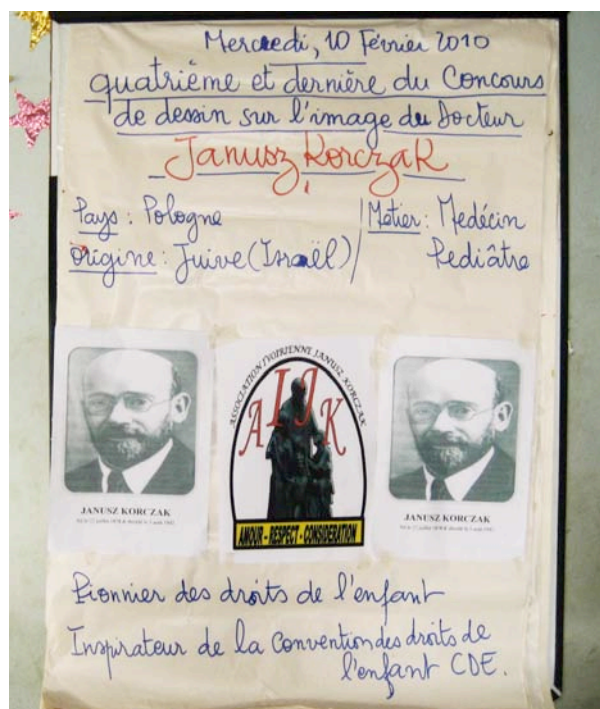 Mercredi, 10 Février 2010
quatrième et dernière du Concours
de dessin sur l'image du Docteur
Janusz Korczak
Pays : Pologne
Origine : Juive (Israël)
Métier : Medécin
Pediâtre
ASSOCIATION IVOIRIENNE JANUSZ KORCZAK
AIJK
AMOUR - RESPECT - CONSIDERATION
JANUSZ KORCZAK
JANUSZ KORCZAK
Pionnier des droits de l'enfant
Inspirateur de la Convention des droits de
l'enfant CDE.